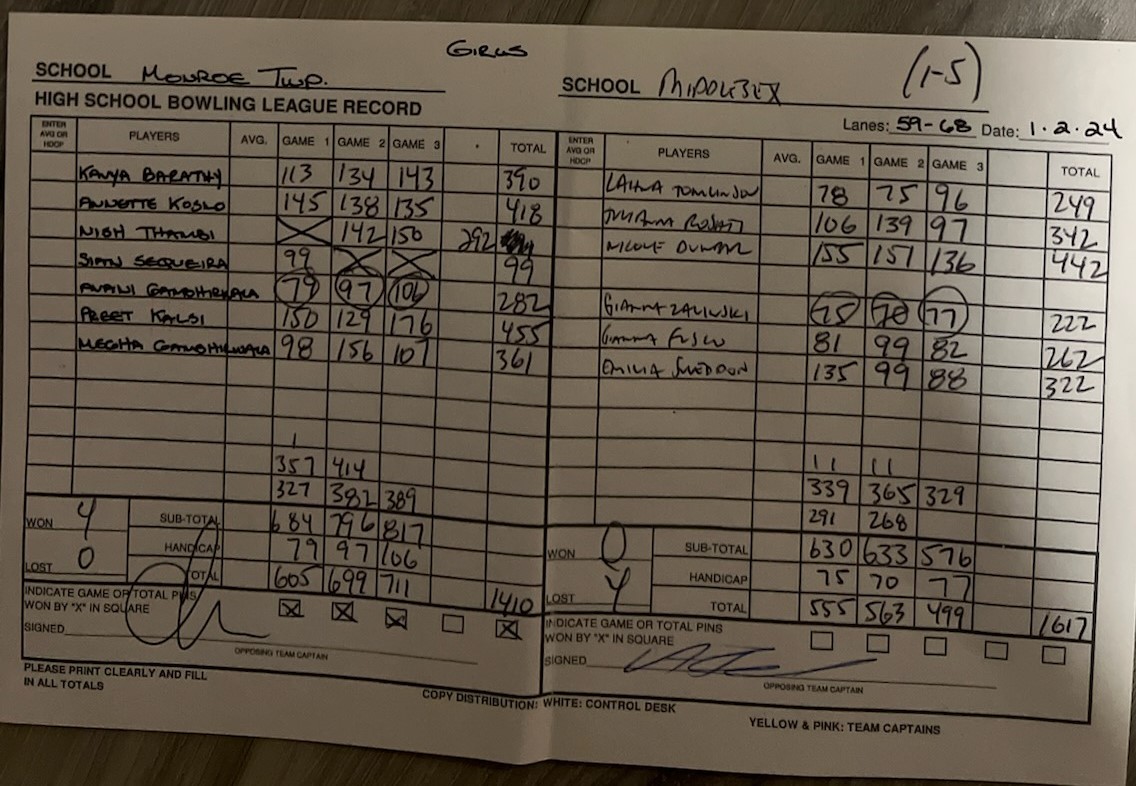 GIRLS
SCHOOL MONROE TWP.
HIGH SCHOOL BOWLING LEAGUE RECORD
ENTER AVG OR HDCP PLAYERS AVG. GAME 1 GAME 2 GAME 3 TOTAL
KAVYA BARATHY 113 134 143 390
ANNETTE KOSLO 145 138 135 418
NIGH THAMBI 142 150 292
SIAN SEQUEIRA 99 99
GANDHIRWALA 79 97 106 282
PREET KALSI 150 129 176 455
MEGHA GANDHIRWALA 98 156 107 361
1
357 414
327 382 389
WON 4 SUB-TOTAL 684 796 817
LOST 0 HANDICAP 79 97 106
TOTAL 605 699 711 1410
INDICATE GAME OR TOTAL PINS
WON BY "X" IN SQUARE
SIGNED
OPPOSING TEAM CAPTAIN
PLEASE PRINT CLEARLY AND FILL
IN ALL TOTALS
SCHOOL MIDDLESEX (1-5)
Lanes: 59-68 Date: 1.2.24
ENTER AVG OR HDCP PLAYERS AVG. GAME 1 GAME 2 GAME 3 TOTAL
TOMLINSON 78 75 96 249
106 139 97 342
NICOLE 155 151 136 442
GIANNA ZALINSKI 75 70 77 222
GIANNA FUSCO 81 99 82 262
EMILIA SNEDDON 135 99 88 322
11 11
339 365 329
291 268
WON 0 SUB-TOTAL 630 633 576
LOST 4 HANDICAP 75 70 77
TOTAL 555 563 499 1617
INDICATE GAME OR TOTAL PINS
WON BY "X" IN SQUARE
SIGNED
OPPOSING TEAM CAPTAIN
COPY DISTRIBUTION: WHITE: CONTROL DESK
YELLOW & PINK: TEAM CAPTAINS